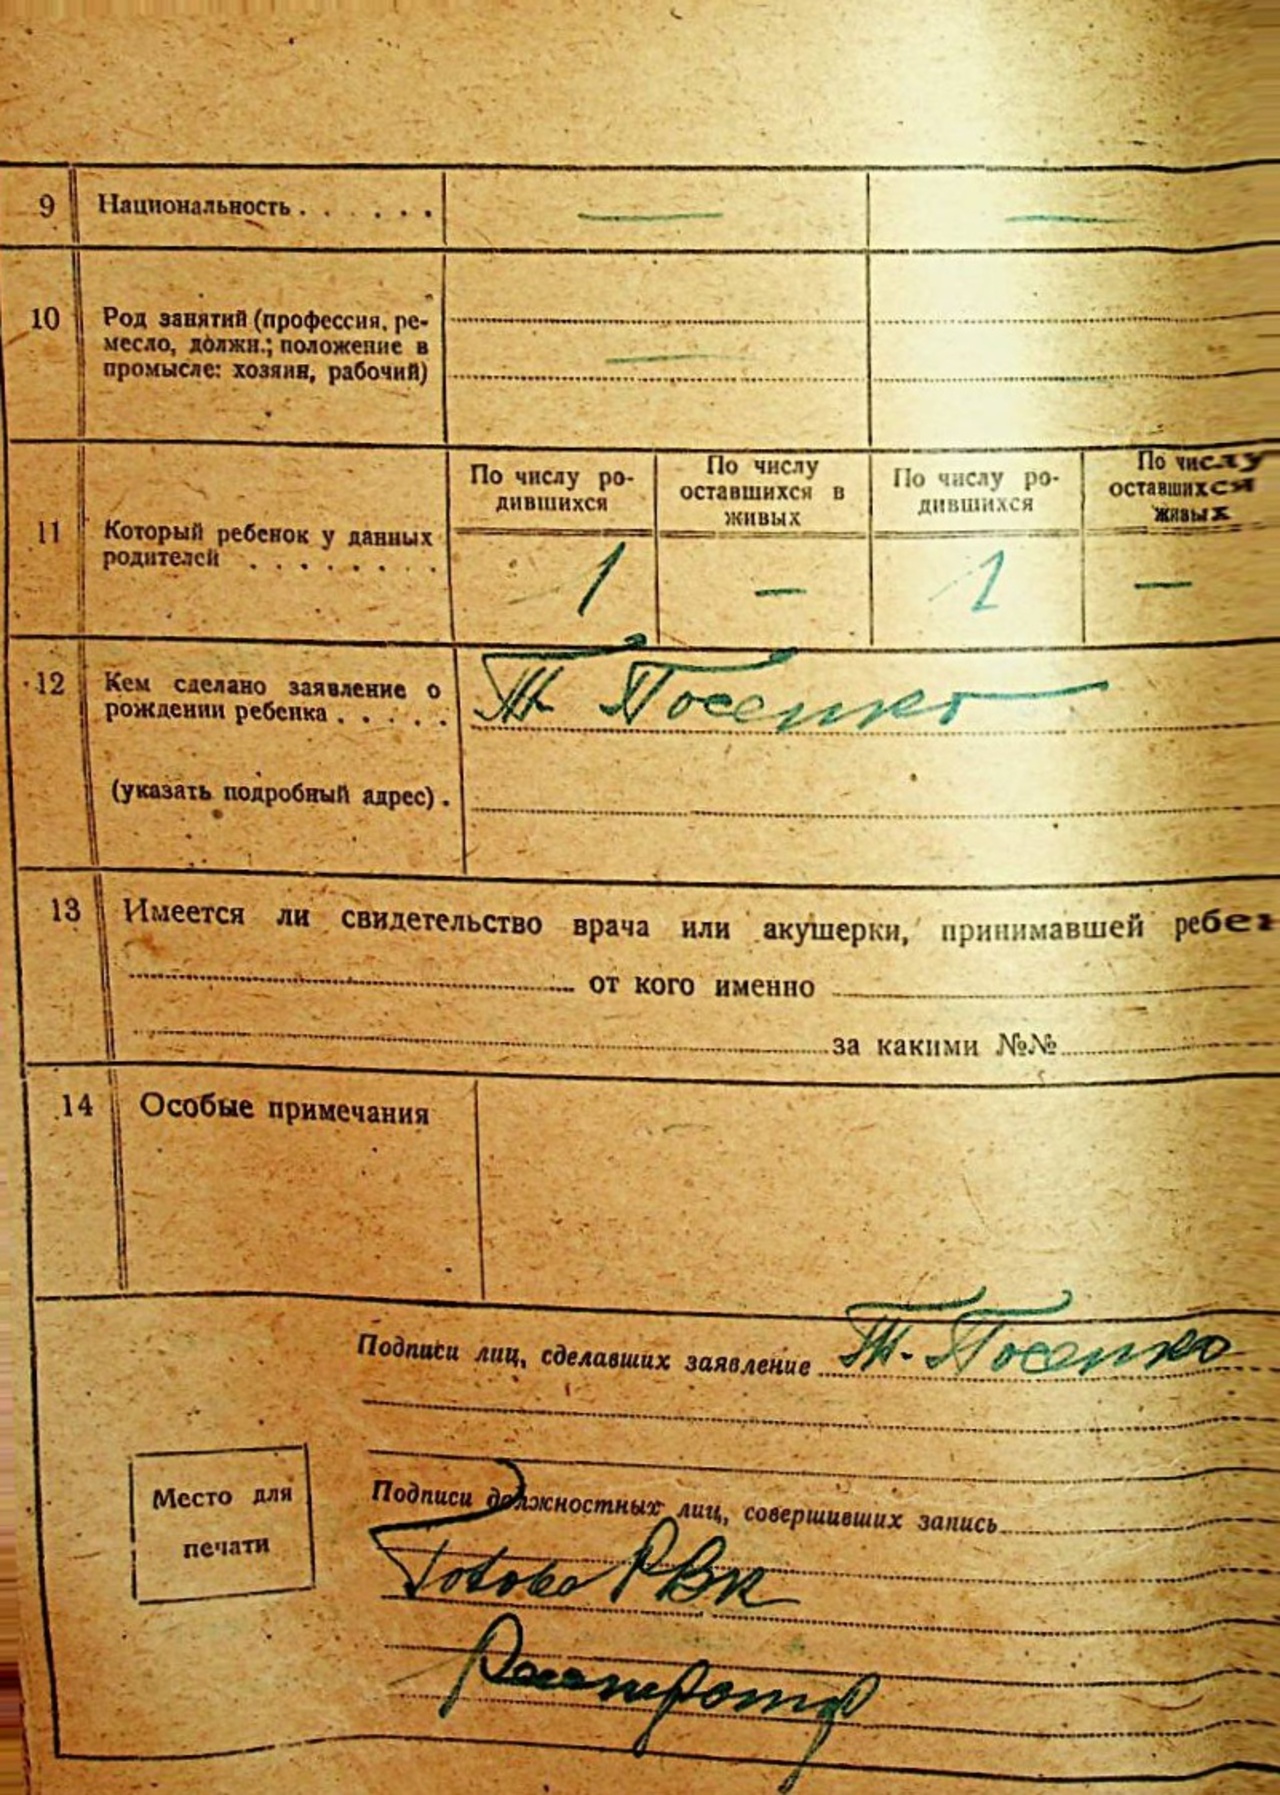 9 Национальность . . . . . . — —
10 Род занятий (профессия, ре-
месло, должн.; положение в —
промысле: хозяин, рабочий)
По числу ро- По числу По числу ро- По числу
дившихся оставшихся в дившихся оставшихся
живых живых
11 Который ребенок у данных 1 — 1 —
родителей . . . . . . . .
12 Кем сделано заявление о Т. Посенко
рождении ребенка . . . . .
(указать подробный адрес) .
13 Имеется ли свидетельство врача или акушерки, принимавшей ребен
от кого именно
за какими №№
14 Особые примечания
Подписи лиц, сделавших заявление Т. Посенко
Место для
печати
Подписи должностных лиц, совершивших запись
РВК